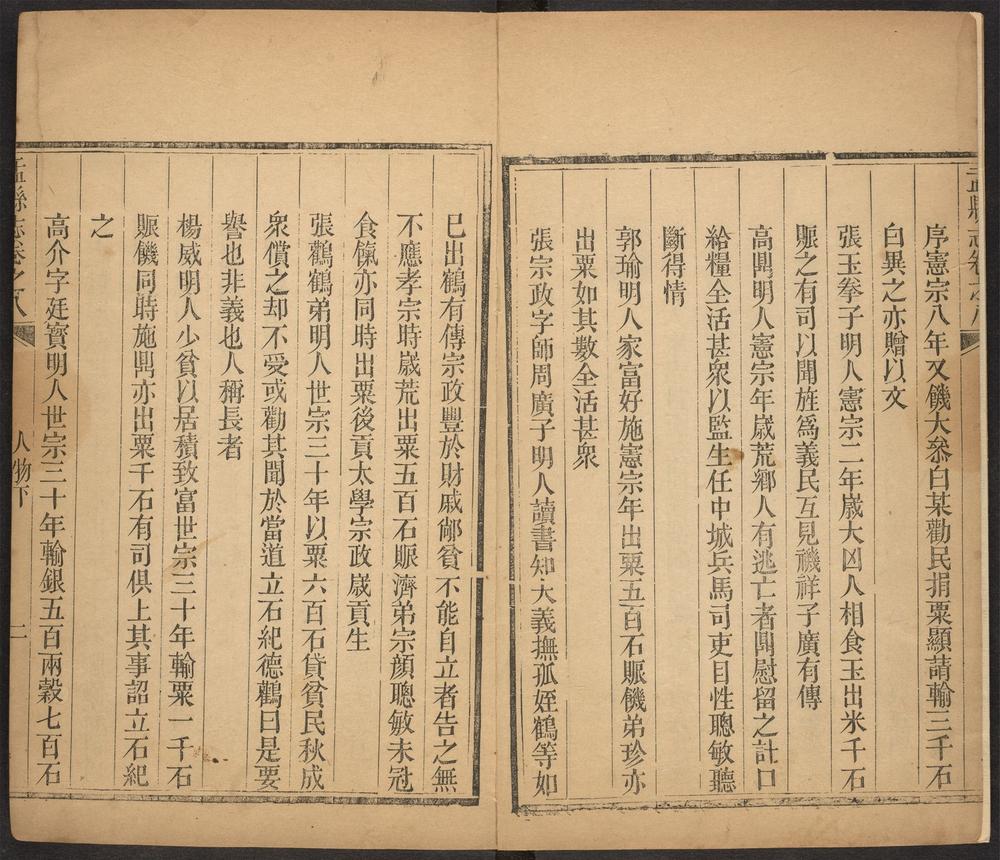 序憲宗八年又饑大叅白某勸民捐粟顯請輸三千石
白異之亦贈以文
張玉拳子明人憲宗二年歲大凶人相食玉出米千石
賑之有司以聞旌爲義民互見禨祥子廣有傳
高閗明人憲宗年歲荒鄉人有逃亡者閗慰留之計口
給糧全活甚衆以監生任中城兵馬司吏目性聰敏聽
斷得情
郭瑜明人家富好施憲宗年出粟五百石賑饑弟珍亦
出粟如其數全活甚衆
張宗政字師周廣子明人讀書知大義撫孤姪鶴等如
孟縣志卷之八
已出鶴有傳宗政豐於財戚鄰貧不能自立者告之無
不應孝宗時歲荒出粟五百石賑濟弟宗顏聰敏未冠
食餼亦同時出粟後貢太學宗政歲貢生
張鸛鶴弟明人世宗三十年以粟六百石貸貧民秋成
衆償之却不受或勸其聞於當道立石紀德鸛曰是要
譽也非義也人稱長者
楊威明人少貧以居積致富世宗三十年輸粟一千石
賑饑同時施閗亦出粟千石有司俱上其事詔立石紀
之
高介字廷寶明人世宗三十年輸銀五百兩穀七百石
孟縣志卷之八 人物下 二